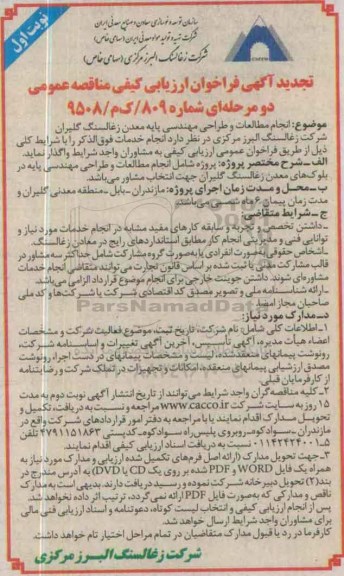 نوبت اول
سازمان توسعه و نوسازی معادن و صنایع معدنی ایران
شرکت تهیه و تولید مواد معدنی ایران (سهامی خاص)
شرکت زغالسنگ البرز مرکزی (سهامی خاص)
تجدید آگهی فراخوان ارزیابی کیفی مناقصه عمومی
دو مرحله‌ای شماره ۸۰۹/ک‌م/۹۵۰۸
موضوع: انجام مطالعات و طراحی مهندسی پایه معدن زغالسنگ گلیران
شرکت زغالسنگ البرز مرکزی در نظر دارد انجام خدمات فوق‌الذکر را با شرایط کلی
ذیل از طریق فراخوان عمومی ارزیابی کیفی به مشاوران واجد شرایط واگذار نماید.
الف ـ شرح مختصر پروژه: پروژه شامل انجام مطالعات و طراحی مهندسی پایه در
بلوک‌های معدن زغالسنگ گلیران جهت انتخاب مشاور می‌باشد.
ب ـ محل و مدت زمان اجرای پروژه: مازندران ـ بابل ـ منطقه معدنی گلیران و
مدت زمان پیمان ۶ ماه شمسی می‌باشد.
ج ـ شرایط متقاضی:
ـ داشتن تخصص و تجربه و سابقه کارهای مفید مشابه در انجام خدمات مورد نیاز و
توانایی فنی و مدیریتی انجام کار مطابق استانداردهای رایج در معادن زغالسنگ.
ـ اشخاص حقوقی به‌صورت انفرادی یا به‌صورت گروه مشارکت شامل حداکثر سه مشاور در
قالب مشارکت مدنی یا ثبت شده بر اساس قانون تجارت می‌توانند متقاضی انجام خدمات
مشاوره‌ای شوند. داشتن جوینت خارجی برای انجام موضوع قرارداد الزامی می‌باشد.
ـ ارائه شناسنامه ملی و تصویر مصدق کد اقتصادی شرکت یا شرکت‌ها و کد ملی
صاحبان مجاز امضا.
د ـ مدارک مورد نیاز:
۱ـ اطلاعات کلی شامل: نام شرکت، تاریخ ثبت، موضوع فعالیت شرکت و مشخصات
اعضاء هیأت مدیره، آگهی تأسیس، آخرین آگهی تغییرات و اساسنامه شرکت،
رونوشت پیمانهای منعقدشده، لیست و مشخصات پیمانهای در دست اجرا، رونوشت
مصدق ارزشیابی پیمانهای منعقده، امکانات و تجهیزات در تملک شرکت و رضایتنامه
از کارفرمایان قبلی.
۲ـ کلیه مناقصه‌گران واجد شرایط می‌توانند از تاریخ انتشار آگهی نوبت دوم به مدت
۱۵ روز به سایت شرکت www.cacco.ir مراجعه و نسبت به دریافت، تکمیل و
تحویل مدارک اقدام نمایند یا با مراجعه به دفتر امور قراردادهای شرکت واقع در
مازندران ـ سوادکوه ـ روبروی پلیس راه سوادکوه ـ کدپستی ۴۷۹۱۱۵۱۸۶۳ تلفن
۵ـ۰۱۱۴۲۴۲۴۰۰۱ نسبت به دریافت اسناد ارزیابی کیفی اقدام نمایند.
۳ـ جهت تحویل مدارک (ارائه اصل فرم‌های تکمیل شده ارزیابی و مدارک مورد نیاز به
همراه یک فایل WORD و PDF شده بر روی یک CD یا DVD) به آدرس مندرج در
بند (۲) تحویل دبیرخانه شرکت نموده و رسید دریافت دارند. بدیهی است به مدارک
ناقص و مدارکی که به‌صورت فایل PDF ارائه نمی‌گردد، ترتیب اثر داده نخواهد شد.
پس از انجام ارزیابی کیفی و انتخاب لیست کوتاه، دعوتنامه و اسناد ارزیابی فنی مالی
برای مشاوران واجد شرایط ارسال خواهد شد.
کارفرما در رد یا قبول مدارک متقاضیان در تمام مراحل اختیار تام خواهد داشت.
شرکت زغالسنگ البرز مرکزی
ParsNamadData